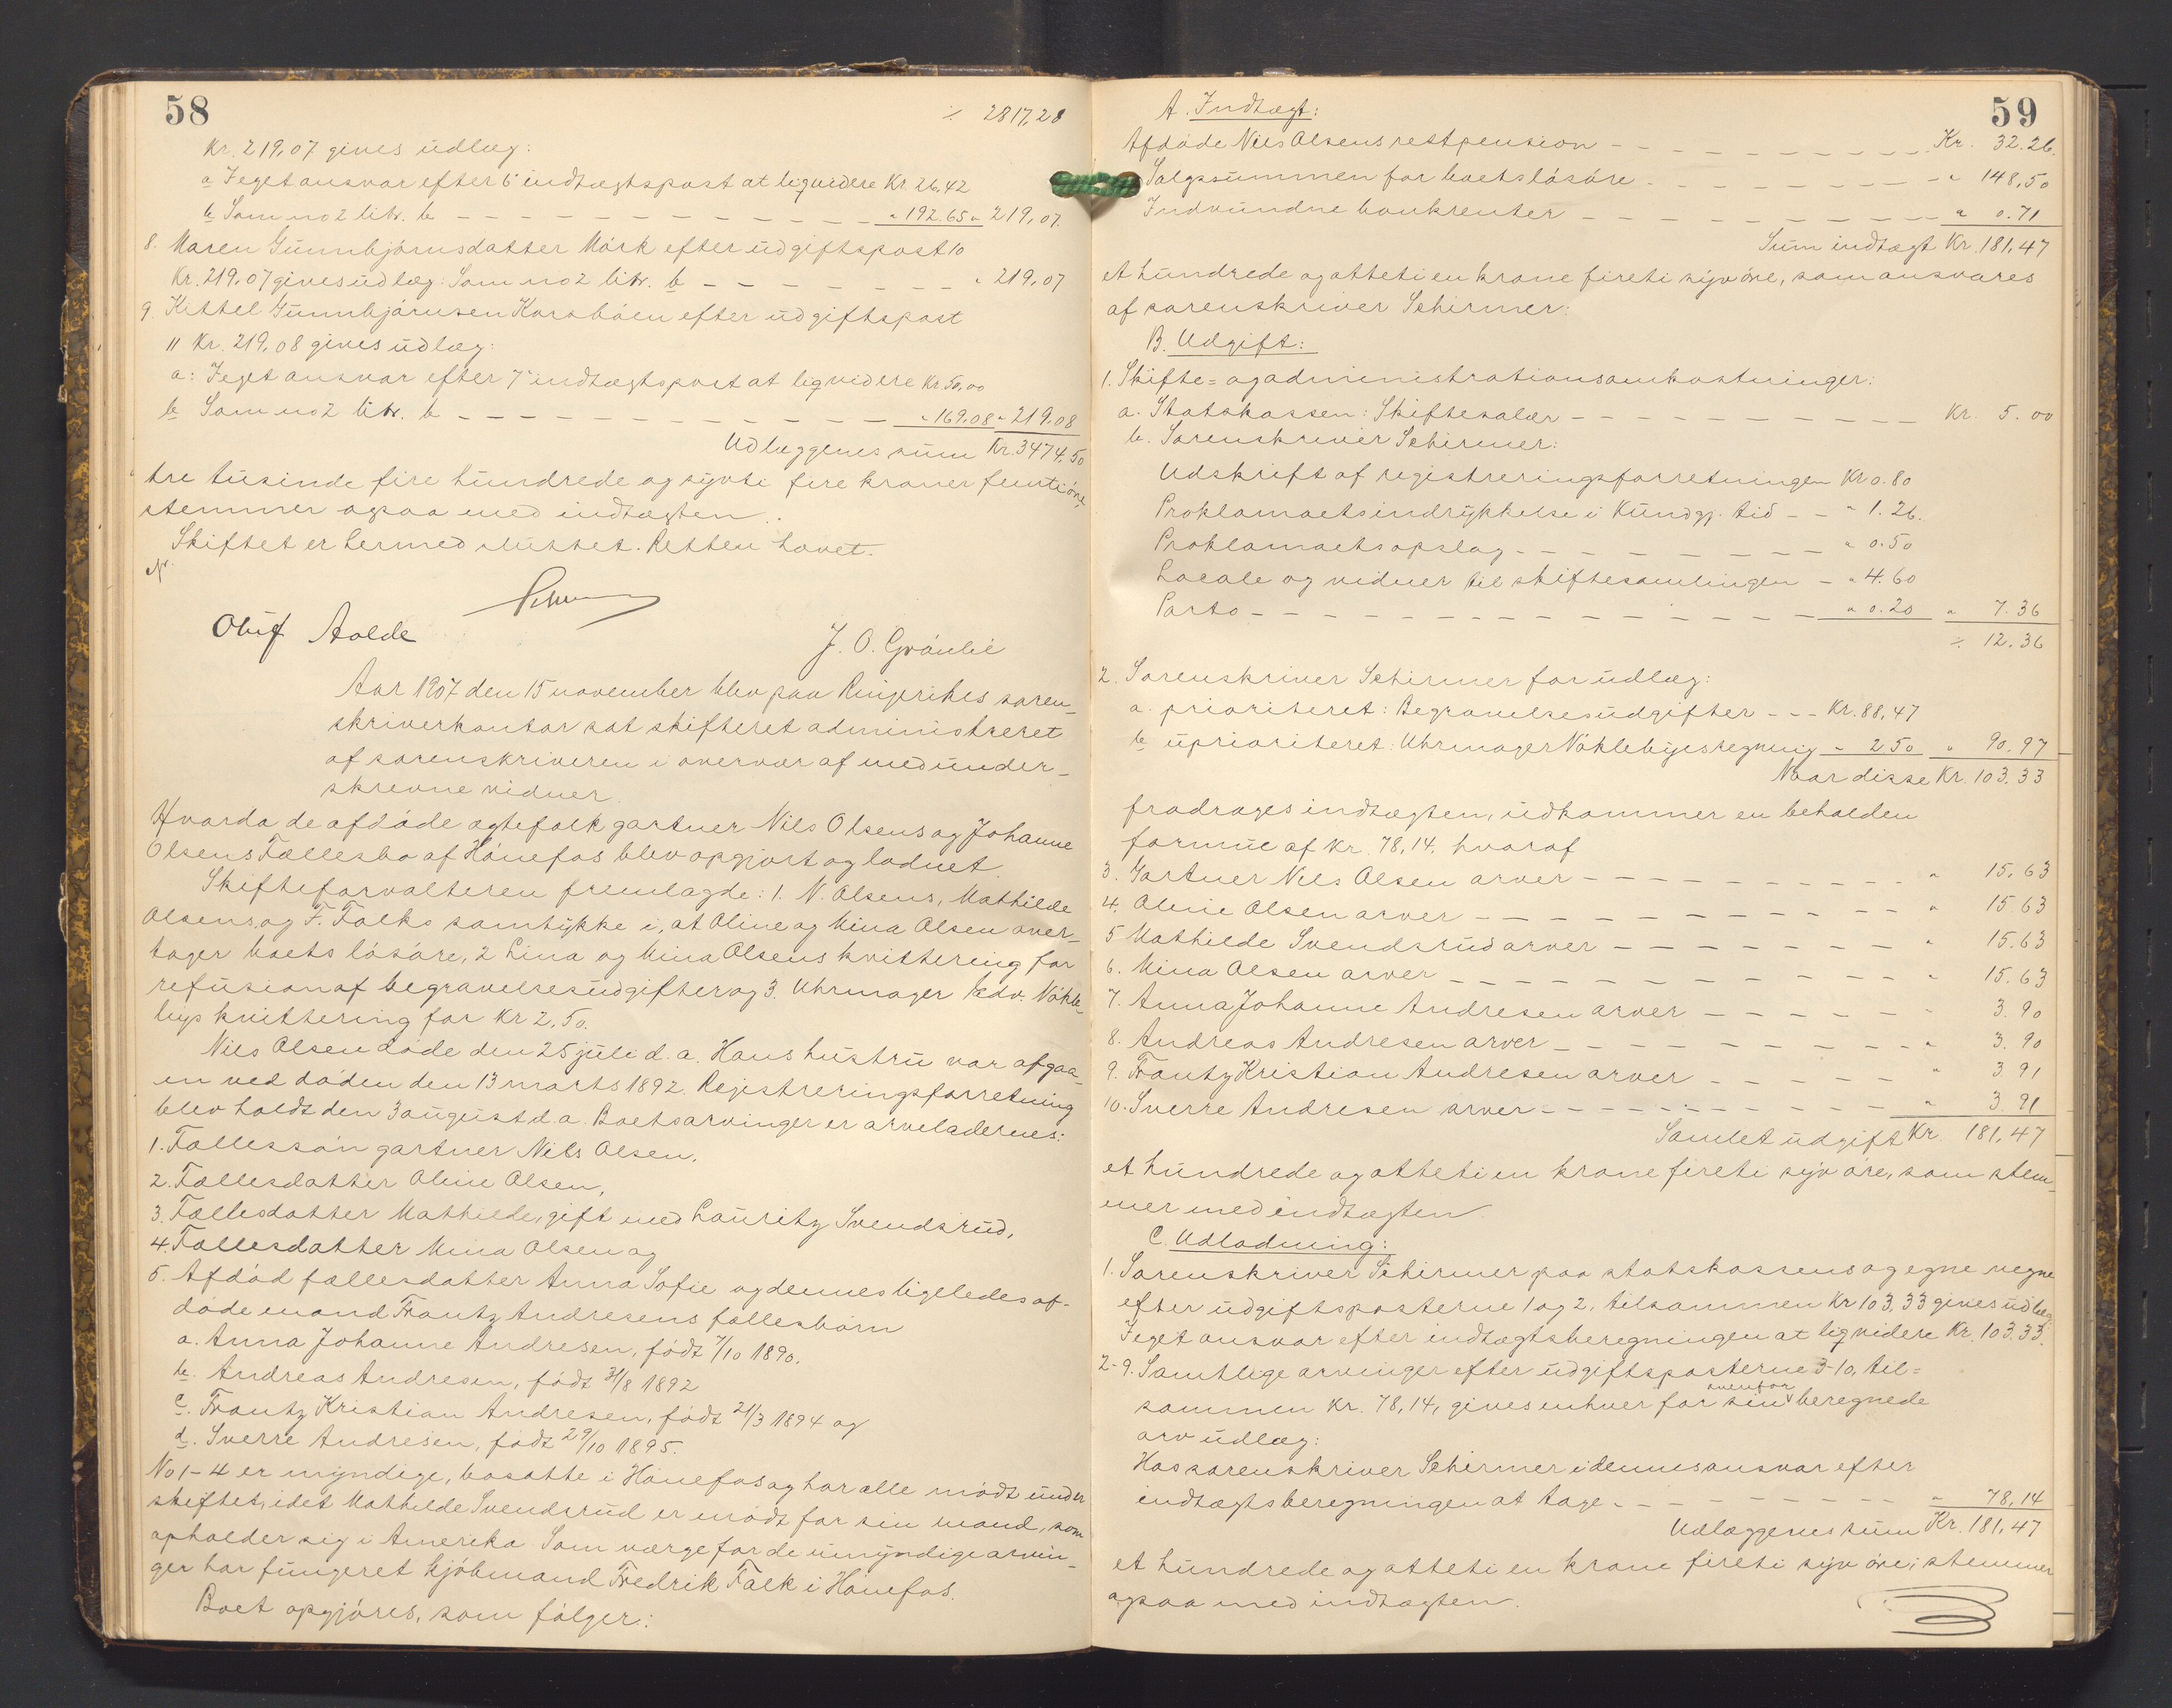 58
÷ 2817,28
Kr. 219,07 gives udlæg:
a I eget ansvar efter 6' indtægtspost at ligvidere Kr. 26,42
b Som no 2 litr. b - - - - - - - - - - " 192.65 " 219,07.
8. Maren Gunnbjørnsdatter Mørk efter udgiftspost 10
Kr. 219,07 gives udlæg: Som no 2 litr. b - - - - - - - - " 219,07
9. Kittel Gunnbjørnsen Korsbøen efter udgiftspost
11 Kr. 219,08 gives udlæg:
a: I eget ansvar efter 7' indtægtspost at ligvidere Kr 50,00
b Som no 2 litr. b - - - - - - - - - - " 169.08 " 219.08
Udlæggenes sum Kr. 3474,50
tre tusinde fire hundrede og sytti fire kroner femti øre,
stemmer ogsaa med indtægten.
Skiftet er hermed sluttet. Retten hævet.
Oluf Aolde
J. O. Grønlie
Aar 1907 den 15 november blev paa Ringerikes soren-
skriverkontor sat skifteret administreret
af sorenskriveren i overvær af medunder-
skrevne vidner.
Hvorda de afdøde ægtefolk gartner Nils Olsens og Johanne
Olsens Fællesbo af Hønefos blev opgjort og lodnet.
Skifteforvalteren fremlagde: 1. N. Olsens, Mathilde
Olsens og F. Falks samtykke i, at Oline og Mina Olsen over-
tager boets løsøre, 2 Lina og Mina Olsens kvittering for
refusion af begravelsesudgifter og 3. Uhrmager Edv. Nøkle-
bys kvittering for Kr 2,50.
Nils Olsen døde den 25 juli d. a. Hans hustru var afgaa-
en ved døden den 13 marts 1892. Registreringsforretning
blev holdt den 3 august d. a. Boets arvinger er arveladernes:
1. Fællessøn gartner Nils Olsen,
2. Fællesdatter Oline Olsen,
3. Fællesdatter Mathilde, gift med Lauritz Svendsrud,
4. Fællesdatter Mina Olsen og
5. Afdød fællesdatter Anna Sofie og dennes ligeledes af-
døde mand Frantz Andresens fællesbørn
a. Anna Johanne Andresen, født 7/10 1890.
b. Andreas Andresen, født 31/8 1892
c. Frantz Kristian Andresen, født 21/3 1894 og
d. Sverre Andresen, født 29/10 1895.
No 1-4 er myndige, bosatte i Hønefos og har alle mødt under
skiftet, idet Mathilde Svendsrud er mødt for sin mand, som
opholder sig i Amerika. Som værge for de umyndige arvin-
ger har fungeret kjøbmand Fredrik Falk i Hønefos.
Boet opgjøres, som følger:
59
A. Indtægt:
Afdøde Nils Olsens restpension - - - - - - - - Kr. 32.26.
Salgssummen for boets løsøre - - - - - - - - " 148,50
Indvundne bankrenter - - - - - - - - - " 0.71
Sum indtægt Kr. 181,47
et hundrede og otteti en krone fireti syv øre, som ansvares
af sorenskriver Schirmer:
B. Udgift:
1. Skifte= og administrationsomkostninger:
a. Statskassen: Skiftesalær - - - - - - - - Kr. 5.00
b. Sorenskriver Schirmer:
Udskrift af registreringsforretningen Kr 0.80
Proklamaets indrykkelse i Kundgj. tid - - " 1.26.
Proklamaets opslag - - - - - - - " 0.50
Locale og vidner til skiftesamlingen - " 4.60
Porto - - - - - - - - - - - - " 0.20 " 7.36
÷ 12.36
2. Sorenskriver Schirmer for udlæg:
a. prioriteret: Begravelsesudgifter - - - Kr. 88,47
b uprioriteret: Uhrmager Nøklebyes regning " 2 50 " 90.97
Naar disse Kr. 103.33
fradrages indtægten, udkommer en beholden
formue af Kr. 78,14. hvoraf
3. Gartner Nils Olsen arver - - - - - - - - - " 15,63
4. Oline Olsen arver - - - - - - - - - - - " 15 63
5 Mathilde Svendsrud arver - - - - - - - - " 15.63
6. Mina Olsen arver - - - - - - - - - - " 15.63
7. Anna Johanne Andresen arver - - - - - - " 3.90
8. Andreas Andresen arver - - - - - - - - - " 3.90
9. Frantz Kristian Andresen arver - - - - - " 3 91
10. Sverre Andresen arver - - - - - - - - " 3.91
Samlet udgift Kr. 181,47
et hundrede og otteti en krone fireti syv øre, som stem-
mer med indtægten.
C. Udlodning:
1. Sorenskriver Schirmer paa statskassens og egne vegne
efter udgiftsposterne 1 og 2, tilsammen Kr 103,33 gives udlæg:
I eget ansvar efter indtægtsberegningen at ligvidere Kr. 103.33.
2-9. Samtlige arvinger efter udgiftsposterne 3-10, til=
sammen Kr. 78,14, gives enhver for sin ovenfor beregnede
arv udlæg:
Hos sorenskriver Schirmer i dennes ansvar efter
indtægtsberegningen at tage - - - - - - - - " 78,14
Udlæggenes sum Kr. 181,47
et hundrede og otteti en krone fireti syv øre; stemmer
ogsaa med indtægten.